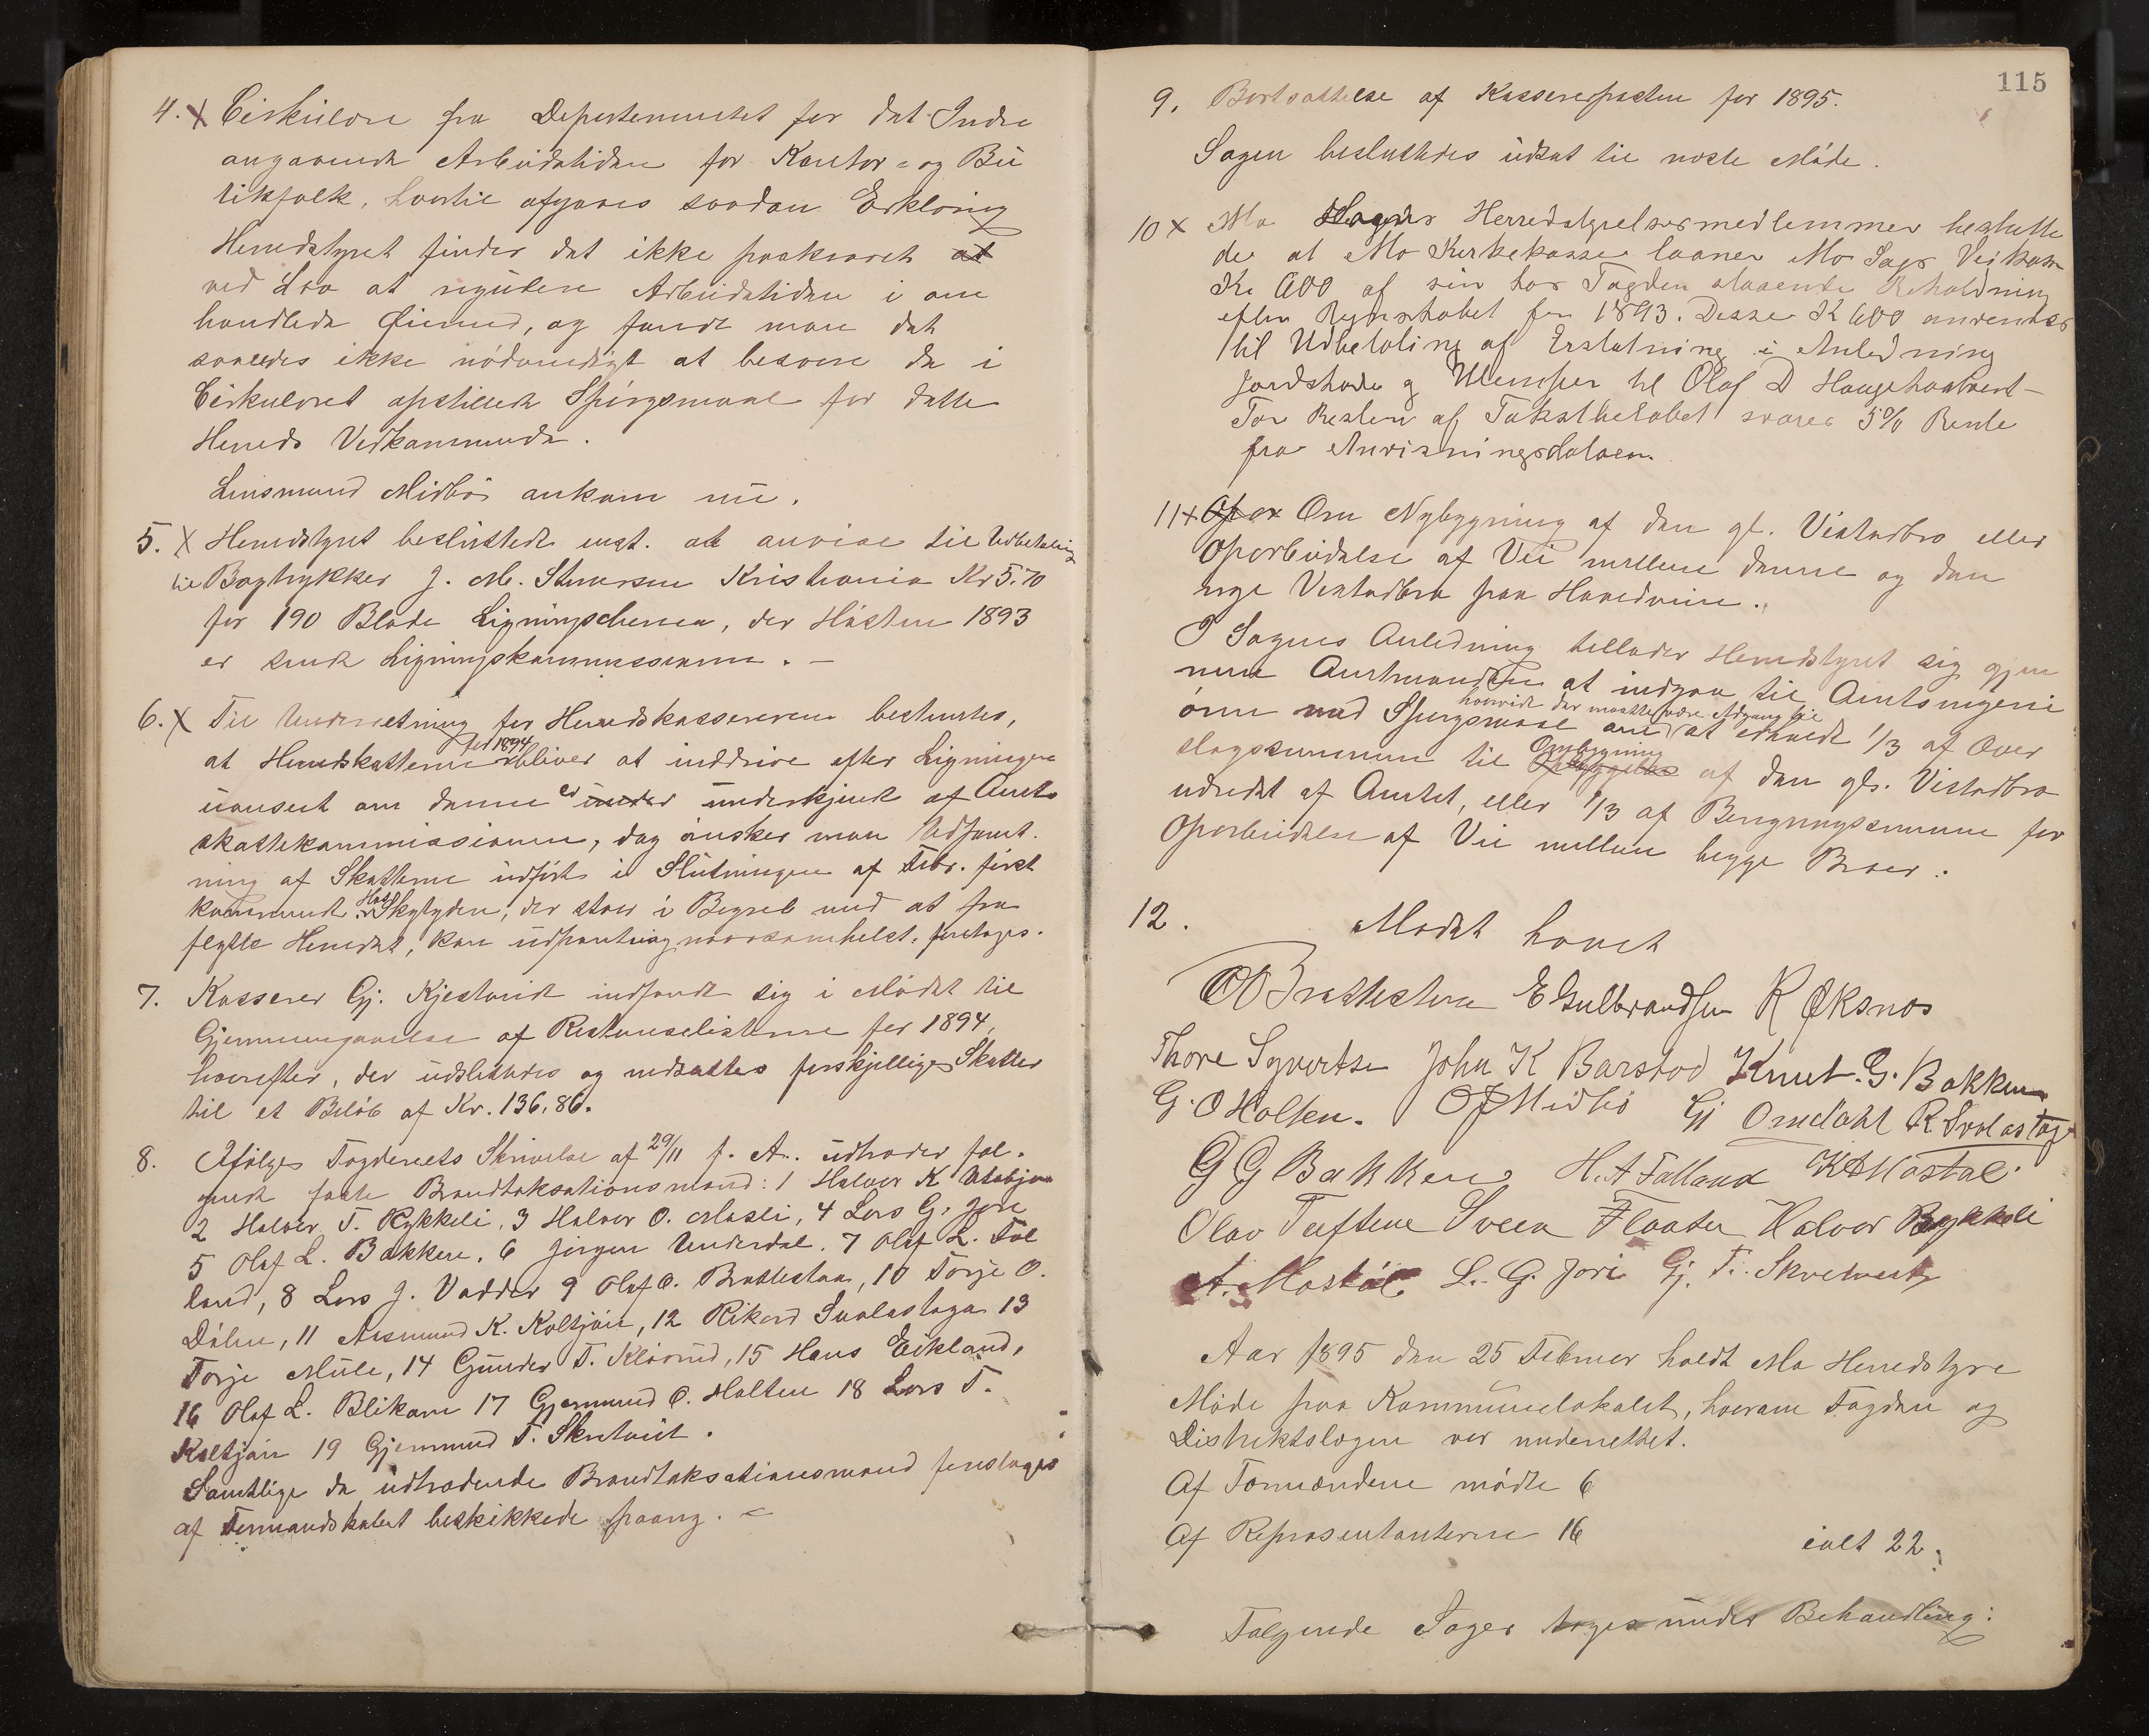 4. x Cirkulære fra Departementet for det Indre
angaaende Arbeidstiden for Kontor= og Bu
tikfolk, hvortil afgaves saadan Erklæring
Herredstyret finder det ikke paakrævet at
ved Lov at regulere Arbeidstiden i om
handlede Øiemed, og fandt man det
saaledes ikke nødvendigt at besvare de i
Cirkulæret opstillede Spørgsmaal for dette
Herreds Vedkommende.
Lensmand Midbø ankom nu.
5. x Herredstyret besluttede enst. at anvise til Udbetaling
til Bogtrykker J. M. Stenersen Kristiania Kr 5.70
for 190 Blade Ligningschema, der Høsten 1893
er sendt Ligningskommissionen. –
6. x Til Underretning for Herredskassereren bestemtes,
at Herredskatterne for 1894 bliver at inddrive efter Ligningen
uanseet om denne er under underkjendt af Amts
skattekommissionen, dog ønsker man Udpant-
ning af Skatterne udført i Slutningen af Febr. først
kommende. Hos Skatydere, der staar i Begreb med at fra
flytte Herredet, kan udpantning naarsomhelst foretages.
7. Kasserer Gj. Kjestveidt indfandt sig i Mødet til
Gjennemgaaelse af Restanselisterne for 1894,
hvorefter, der udslettedes og nedsattes forskjellige Skatter
til et Beløb af Kr. 136,86.
8. Ifølge Fogderiets Skrivelse af 29/11 f. A. udtræder føl-
gende faste Brandtaksationsmænd: 1 Halvor K
2 Halvor T. Rykkeli, 3 Halvor O. Masli, 4 Lars G. Jore
5 Olaf L. Bakken, 6 Jørgen Underdal. 7 Olaf L. Føl
land, 8 Lars J. Vadder 9 Olaf O. Brattestaa, 10 Torje O.
Dølen, 11 Aasmund K. Koltjøn, 12 Rikard Svalastoga 13
Torje Mule, 14 Gunder T. Kløvrud, 15 Hans Eikland,
16 Olaf L. Blikom 17 Gjermund O. Holten 18 Lars T.
Koltjøn 19 Gjermund T. Skretveit.
Samtlige de udtrædende Brandtaksationsmænd foreslaaes
af Formandskabet beskikkede paany. –
115
9. Bortsættelse af Kassererposten for 1895.
Sagen besluttedes udsat til næste Møde.
10 x Mo Sogns Herredstyrelsesmedlemmer beslutte
de at Mo Kirkekasse laaner Mo Sogs Veikasse
Kr 600 af sin hos Fogden staaende Beholdning
efter Regnskabet for 1893. Disse K 600 anvendes
til Udbetaling af Erstatning i Anledning
Jordskade og Ulemper til Olaf D Haugehaatveit –
For Resten af Takstbeløbet svares 5% Rente
fra Anvisningsdatoen.
11 x Op ox Om Nybygning af den gl. Vistadbro eller
Oparbeidelse af Vei mellem denne og den
nye Vistadbro paa Hovedveien.
I Sagens Anledning tillader Herredstyret sig gjen
nem Amtmanden at indgaa til Amtsingeni
øren med Spørgsmaal om hvorvidt der maatte være Adgang til at erholde 1/3 af Over
slagssummen til Opbyggelse Ombygning af den gl. Vistadbro
udredet af Amtet, eller 1/3 af Beregningssummen for
Oparbeidelse af Vei mellem begge Broer.
12. Mødet hævet
O O Brattestaa E Gulbrandsen K Øksnes
Thore Syvertsen John K Barstad Knut. G. Bakken
G. O Holten. O J Midbø Gj Omdahl R. Svalastoga
G G Bakken H. A Falland K A Mostøl.
Olav Tveften Svein Flaaten Halvor Rykkeli
A. Mostøl. L. G. Jore Gj. T. Skretveit
Aar 1895 den 25 Februar holdt Mo Herredstyre
Møde paa Kommunelokalet, hvorom Fogden og
Distriktslægen var underrettet.
Af Formændene mødte 6
Af Repræsentanterne 16 ialt 22.
Følgende Sager toges under Behandling: